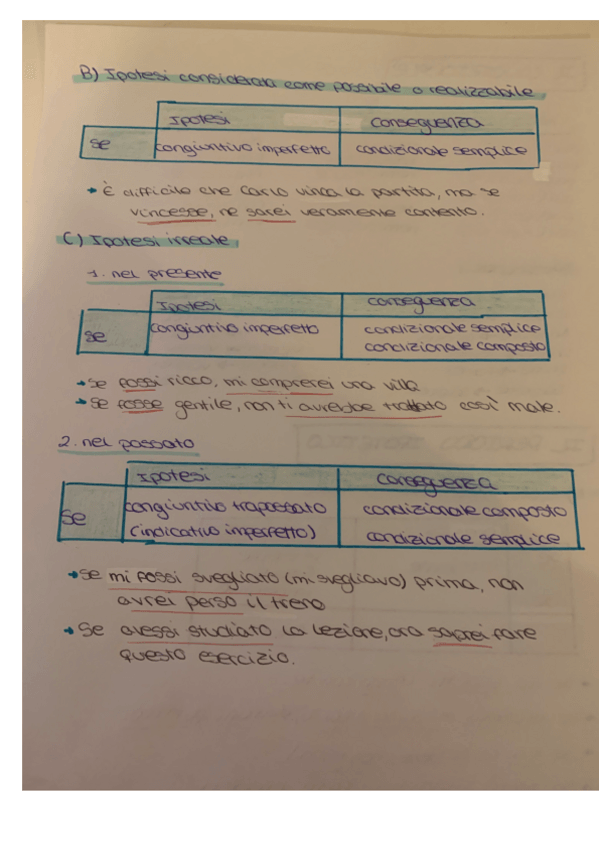 B) Ipotesi considerata come possibile o realizzabile
Ipotesi conseguenza
se congiuntivo imperfetto condizionale semplice
→ È difficile che Carlo vinca la partita, ma se
vincesse, ne sarei veramente contento.
C) Ipotesi irreale
1. nel presente
Ipotesi conseguenza
se congiuntivo imperfetto condizionale semplice
condizionale composto
→ se fossi ricco, mi comprerei una villa
→ se fosse gentile, non ti avrebbe trattato così male.
2. nel passato
Ipotesi conseguenza
se congiuntivo trapassato condizionale composto
(indicativo imperfetto) condizionale semplice
→ se mi fossi svegliato (mi svegliavo) prima, non
avrei perso il treno
→ Se avessi studiato la lezione, ora saprei fare
questo esercizio.